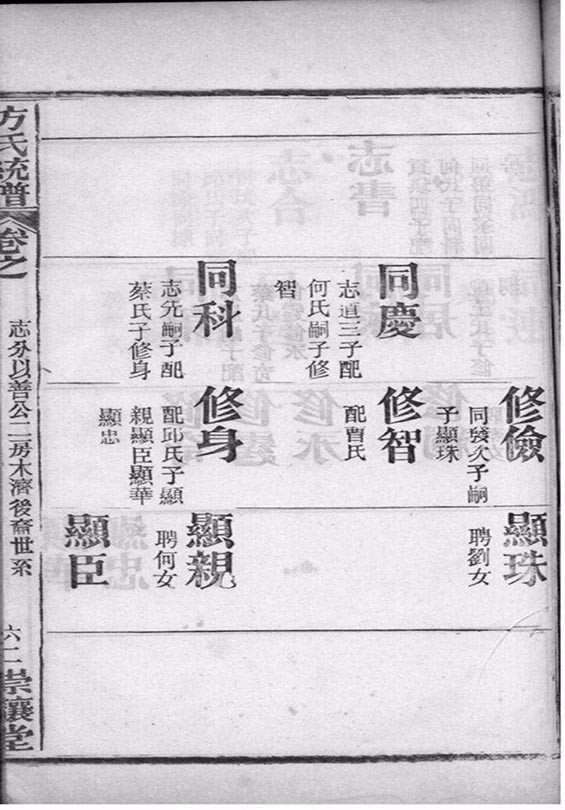 修儉
同發次子嗣
子顯珠
顯珠
聘劉女
同慶
志道三子配
何氏嗣子修
智
修智
配曹氏
同科
志先嗣子配
蔡氏子修身
修身
配邱氏子顯
親顯臣顯華
顯忠
顯親
聘何女
顯臣
方氏統譜
卷之
志分以善公二房木濟後裔世系
六二
崇讓堂